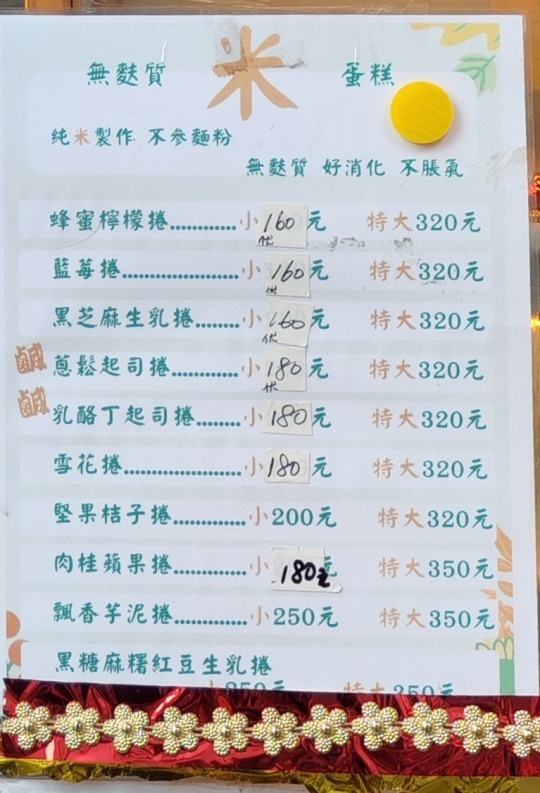 無麩質 米 蛋糕
純米製作 不參麵粉
無麩質 好消化 不脹氣
蜂蜜檸檬捲............小160元 特大320元
藍莓捲....................小160元 特大320元
黑芝麻生乳捲........小160元 特大320元
鹹 蔥鬆起司捲............小180元 特大320元
鹹 乳酪丁起司捲........小180元 特大320元
雪花捲....................小180元 特大320元
堅果桔子捲.............小200元 特大320元
肉桂蘋果捲.............小180元 特大350元
飄香芋泥捲.............小250元 特大350元
黑糖麻糬紅豆生乳捲
特大350元